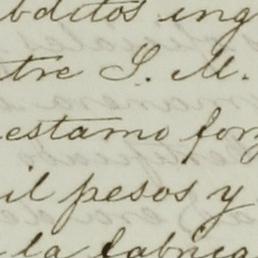 bditos ing
tre S. M.
estamo for
il pesos y
la fabrica